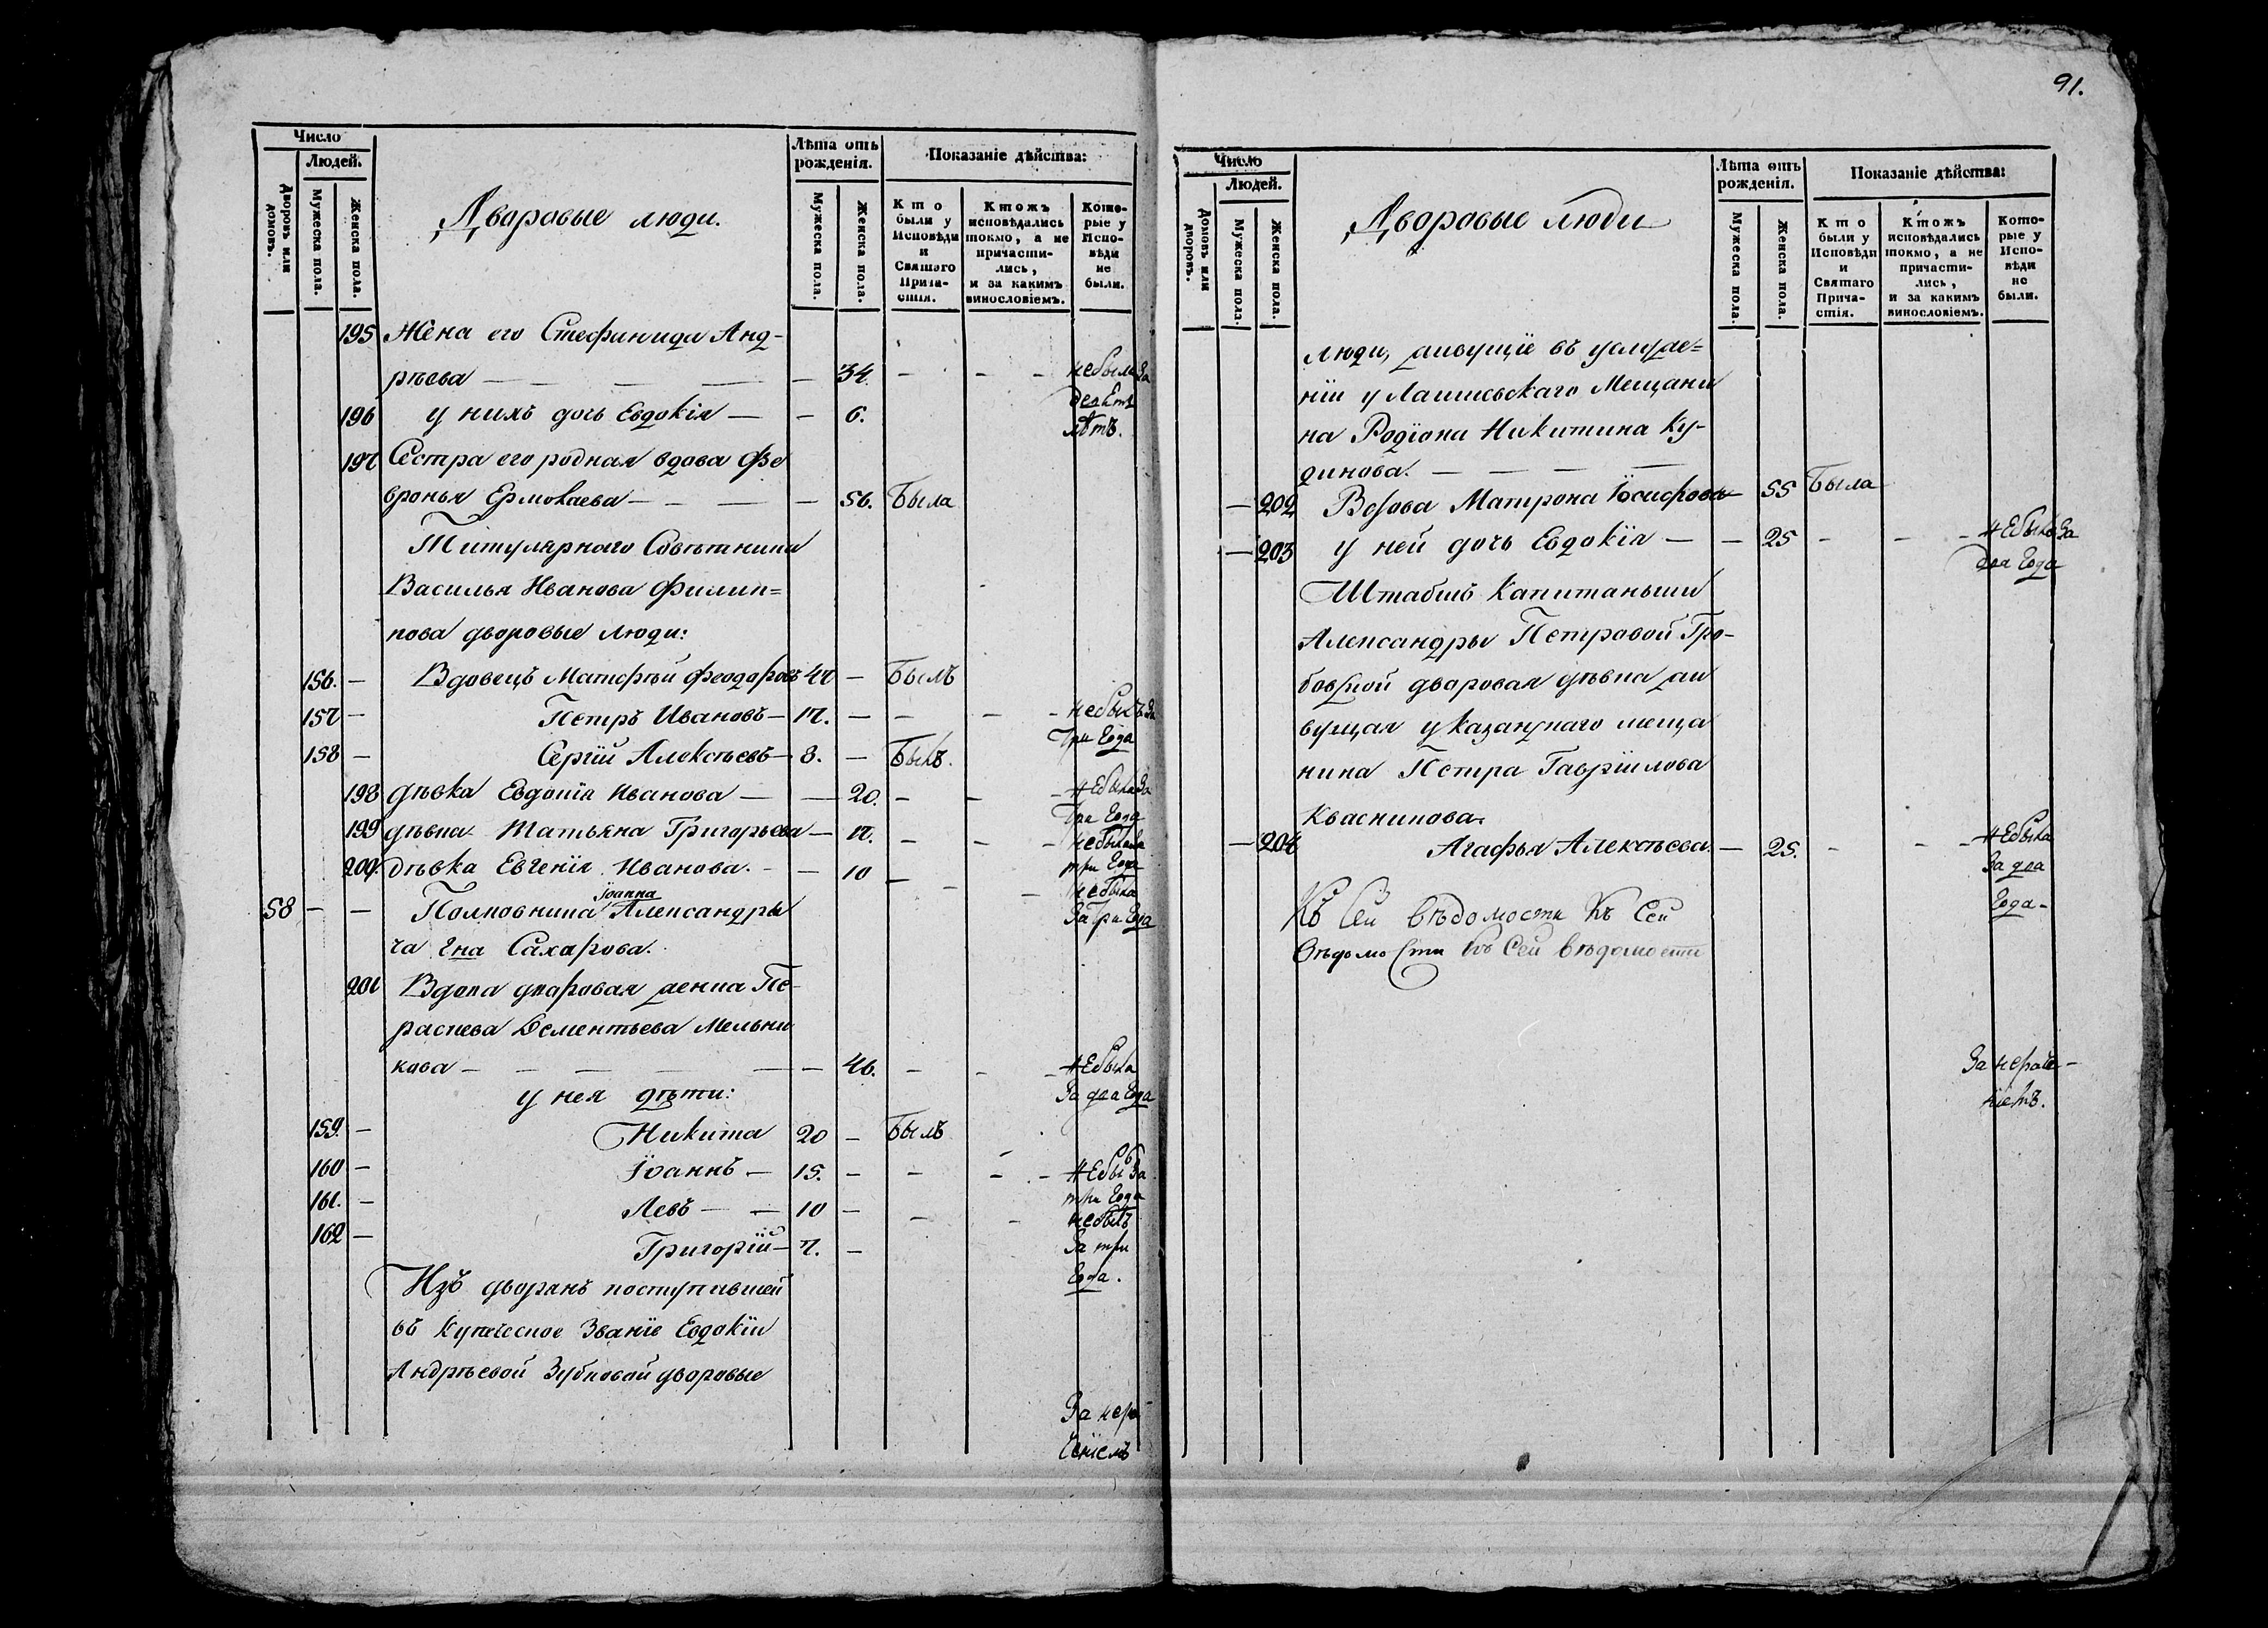 91.
Число
Людей.
Дворовъ или домовъ.
Мужеска пола.
Женска пола.
Дворовые люди.
Лѣта отъ рожденія.
Мужеска пола.
Женска пола.
Показаніе дѣйства:
Кто были у Исповѣди и Святаго Прича- стія.
Ктожъ исповѣдались токмо, а не причасти- лись, и за какимъ винословіемъ.
Кото- рые у Испо- вѣди не были.
195 Жена его Стефанида Анд-
рѣева — — — — — 34. - - - небыла за
девять
лѣтъ.
196 у нихъ дочь Евдокія — — 6.
197 Сестра его родная вдова Фе
вронья Ермолаева — — — 56. Была
Титулярнаго Совѣтника
Василья Иванова Филип=
пова дворовые люди:
156. — Вдовецъ Матфѣй Феодоровъ 47 — Былъ
157 — Петръ Ивановъ — 17. — — — - небылъ за
три года
158 — Сергій Алексѣевъ — 8. — Былъ.
198 дѣвка Евдокія Иванова — — 20. - - - небыла за
три года
199 дѣвка Татьяна Григорьева — 17. - - - небыла за
три года
200. дѣвка Евгенія Иванова. - — 10 - - - небыла
За три года
58 — — Полковника Іоанна Александры
ча г̃на Сахарова.
201 Вдова дворовая женка Пе-
раскева Дементьева Мельни
кова — — — — — — 46. - - - небыла
За два года
у нея дѣти:
159. — Никита 20 — Былъ
160 — Іоаннъ — 15. — - - - небылъ за
три года
161. — Левъ — — 10 — - - небылъ
За три
года.
162 — Григорій — 7. —
Изъ дворянъ поступившей
въ купеческое званіе Евдокіи
Андрѣевой Зубковой дворовые
За нера
ченіемъ
Число
Людей.
Домовъ или дворовъ.
Мужеска пола.
Женска пола.
Дворовые люди
Лѣта отъ рожденія.
Мужеска пола.
Женска пола.
Показаніе дѣйства:
Кто были у Исповѣди и Святаго Прича- стія.
Ктожъ исповѣдались токмо, а не причасти- лись, и за какимъ винословіемъ.
Кото- рые у Испо- вѣди не были.
люди, живущіе въ услуже=
ніи у Лаишевскаго Мещани
на Родіона Никитина Ку-
динова. — — — —
— 202 Вдова Матрона Іосифова — 55 Была
— 203 у ней дочь Евдокія — — 25 - - - небыла за
два года
Штабсъ Капитанши
Александры Петровой Гро-
бовской дворовая дѣвка жи
вущая у казанскаго меща
нина Петра Гавріилова
Квасникова.
— 204 Агафья Алексѣева. — 25. - - - небыла
За два
года-
Къ Сей вѣдомости Къ Сей
Вѣдомости Къ Сей вѣдомости
За нераче-
ніемъ.